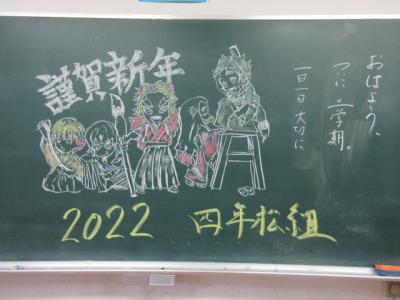 謹賀新年
おはよう、
ついに三学期。
一日一日 大切に
2022 四年松組